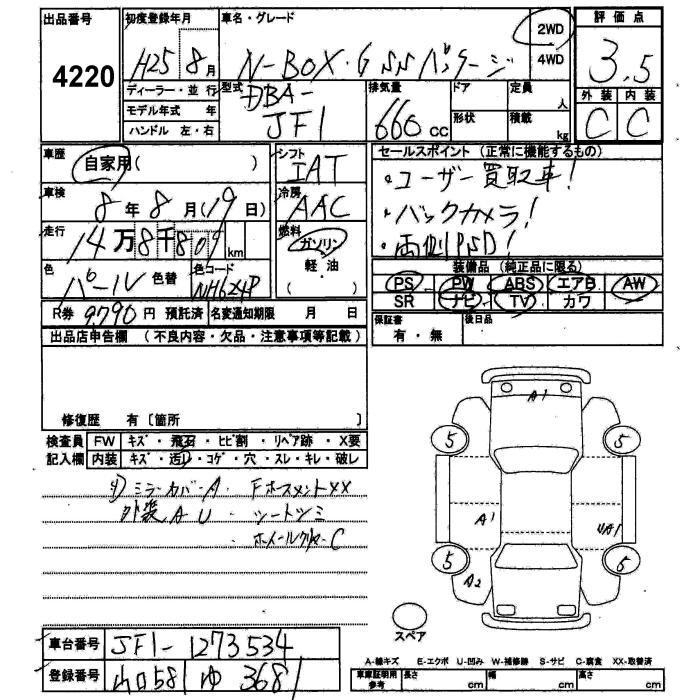 出品番号
4220
初度登録年月
H25 8月
車名・グレード
N-BOX・G SSパッケージ
2WD
4WD
評価点
3.5
外装 内装
C C
ディーラー・並行
モデル年式 年
ハンドル 左・右
型式
DBA-
JF1
排気量
660 cc
ドア
形状
定員
人
積載
kg
車歴
自家用( )
車検
8年8月(19日)
走行
14万8千809km
色
パール
色替
色コード
NH624P
シフト
IAT
冷房
AAC
燃料
ガソリン
軽・油
( )
セールスポイント (正常に機能するもの)
・ユーザー買取車!
・バックカメラ!
・両側PSD!
装備品 (純正品に限る)
PS PW ABS エアB AW
SR ナビ TV カワ
R券 9,790円 預託済
名変通知期限 月 日
保証書
有・無
後日品
出品店申告欄 (不良内容・欠品・注意事項等記載)
修復歴 有〔箇所 〕
検査員 FW キズ・飛石・ヒビ割・リペア跡・X要
記入欄 内装 キズ・汚れ・コゲ・穴・スレ・キレ・破レ
ミラーカバーA.
外装AU.
A1
5 5
A1
5 5
A2
スペア
車台番号 JF1-1273534
登録番号 山口581 ゆ 3681
A-線キズ E-エクボ U-凹み W-補修跡 S-サビ C-腐食 XX-取替済
車庫証明用
参考
長さ cm
幅 cm
高さ cm